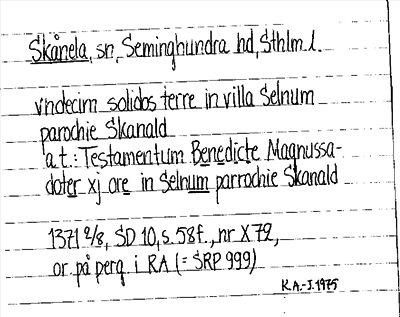 Skånela, sn, Seminghundra hd, Sthlm l.
vndecim solidos terre in villa Selnum
parochie Skanald
a.t.: Testamentum Benedicte Magnussa-
doter xj ore in Selnum parrochie Skanald
1371 2/8, SD 10, s. 58f., nr X 79,
or på perg i RA (= SRP 999)
K.A.-J. 1975